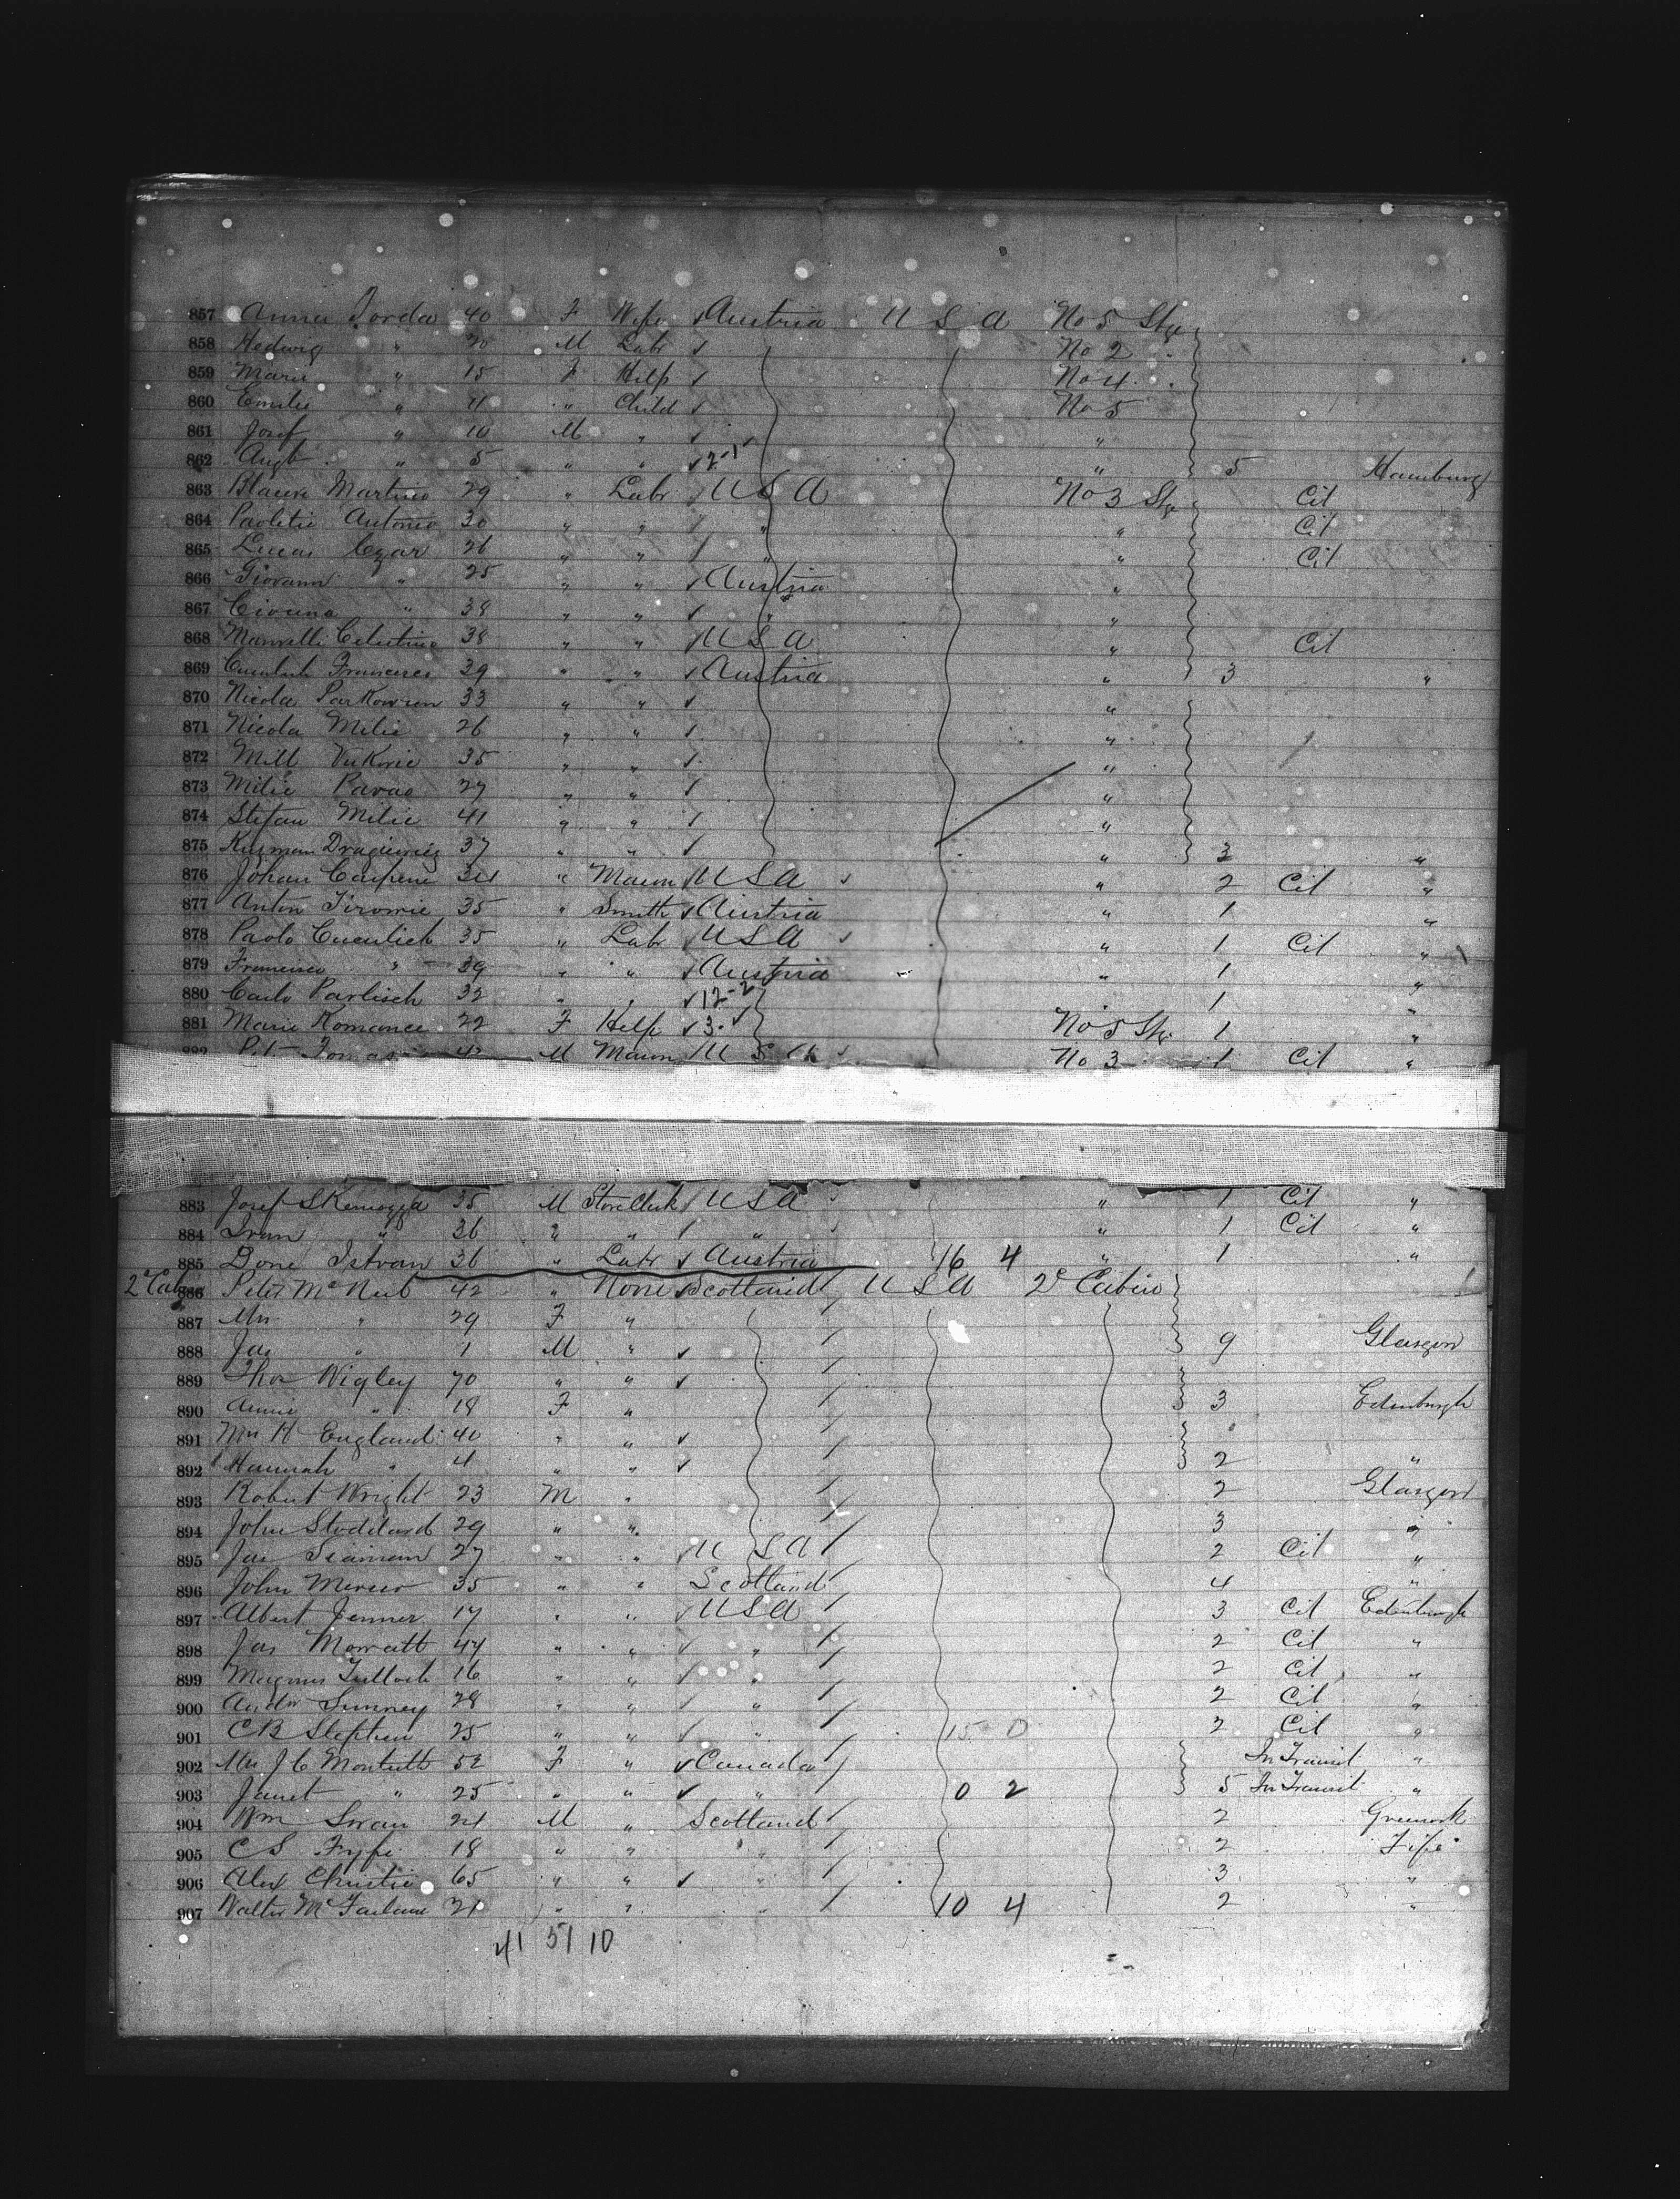 857 Anna Jorda 40 F Wife Austria U S A No 5 Stge
858 Hedwig " 20 M Labr No 2 "
859 Marie " 15 F Help No 4 "
860 Emilie " 11 " Child No 5
861 Josef " 10 M " "
862 Augt " 5 " " 2-1 " 5 Hamburg
863 Martino 29 " Labr U S A No 3 Stge Cit
864 Paoletic Antonio 30 " " " " Cit
865 Lucas Czar 26 " " " " Cit
866 Giovanni " 25 " " Austria "
867 " 38 " " " "
868 Celestino 38 " " U S A " Cit
869 39 " " Austria " 3 "
870 Nicola 33 " " "
871 Nicola Milic 26 " " "
872 Mill Vukovic 35 " " "
873 Milic Pavao 27 " " "
874 Stefan Milic 41 " " "
875 Kuzman 37 " " " 3 "
876 Johan 34 " Mason U S A " 2 Cit "
877 Anton 35 " Smith Austria " 1 "
878 Paolo Cuculich 35 " Labr U S A " 1 Cit "
879 Francisco " 39 " " Austria " 1 "
880 Carlo Parlisch 32 " " 12-2 " 1 "
881 Marie Romance 22 F Help 3- No 5 Stge 1 "
882 42 M Mason U S A No 3 1 Cit "
883 Josef 35 M Store Clerk U S A " 1 Cit "
884 Ivan " 36 " " " " 1 Cit "
885 Done Istvan 36 " Labr Austria 16 4 " 1 "
2d Cab 886 Peter McNeil 42 " None Scotland U S A 2d Cabin
887 Mrs " 29 F "
888 Jas " 1 M " 9 Glasgow
889 Thos Wigley 70 " "
890 Annie " 18 F " 3 Edinburgh
891 Mrs H England 40 " "
892 Hannah " 4 " " 2 "
893 Robert Wright 23 M " 2 Glasgow
894 John Stoddard 29 " " 3 "
895 Jas Seaman 27 " " U S A 2 Cit "
896 John Mercer 35 " " Scotland 4 "
897 Albert Jenner 17 " " U S A 3 Cit Edinburgh
898 Jas Mowatt 44 " " " 2 Cit "
899 Magnus Tulloch 16 " " " 2 Cit "
900 Andw 28 " " " 2 Cit "
901 C B Stephen 25 " " " 15 0 2 Cit "
902 Mrs J C Monteith 52 F " Canada In Transit "
903 Janet " 25 " " 0 2 5 In Transit "
904 Wm Swan 24 M " Scotland 2 Greenock
905 C S Fyfe 18 " " " 2 Fife
906 Alex Christie 65 " " " 3 "
907 Walter McFarlane 21 " " " 10 4 2 "
41 51 10